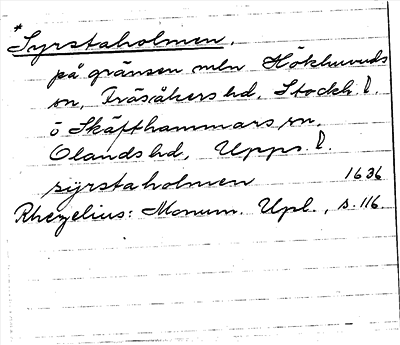 *Syrstaholmen.
på gränsen mln Hökhuvuds
sn, Frösåkers hd, Stockh. l.
o Skäfthammars sn.
Olands hd, Upps. l.
syrstaholmen 1636
Rhezelius: Monum. Upl., s. 116.